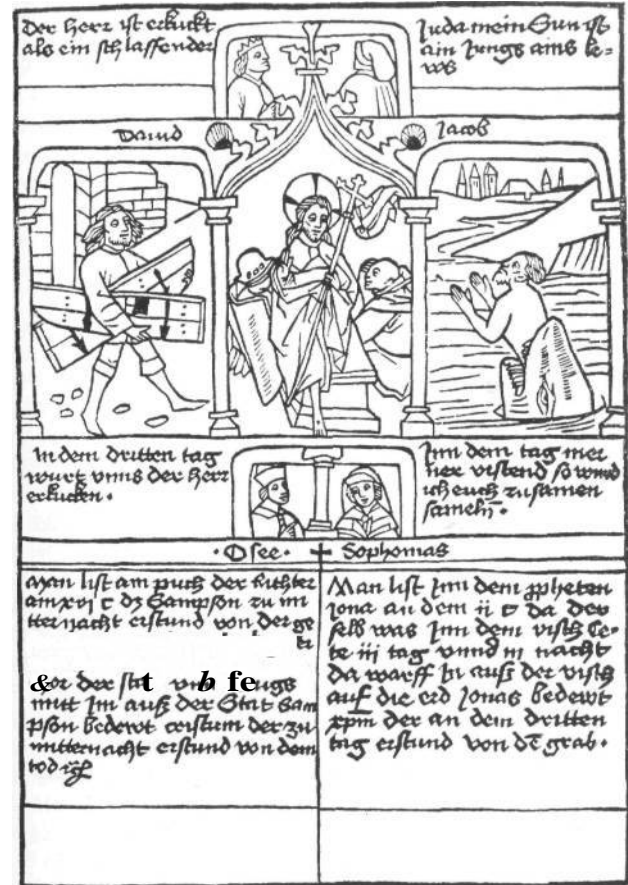 Der herr ist erkuckt
als ein schlaffender
Juda mein Sun ist
ain Jungs ains le-
ws
Dauid
Jacob
In dem dritten tag
wurt vnns der herr
erkucken.
Inn dem tag mei
ner vistend so wird
ich euch zu samen
sameln.
Osee. + Sophonias
Man list am puch der Richter
am xvj c dz Sampson zu mi
tternacht erstund von der ge
&or der stat vnb fe
mitt Im auß der Stat Sam
pson bedewt cristum der zu
mitternacht erstund von dem
tod
Man list Inn dem ppheten
Jona an dem ii c da der
selb was Inn dem visch Ce-
te iii tag vnnd iii nacht
da warff In auß der visch
auf die erd Jonas bedewt
xpm der an dem dritten
tag erstund von dē grab.